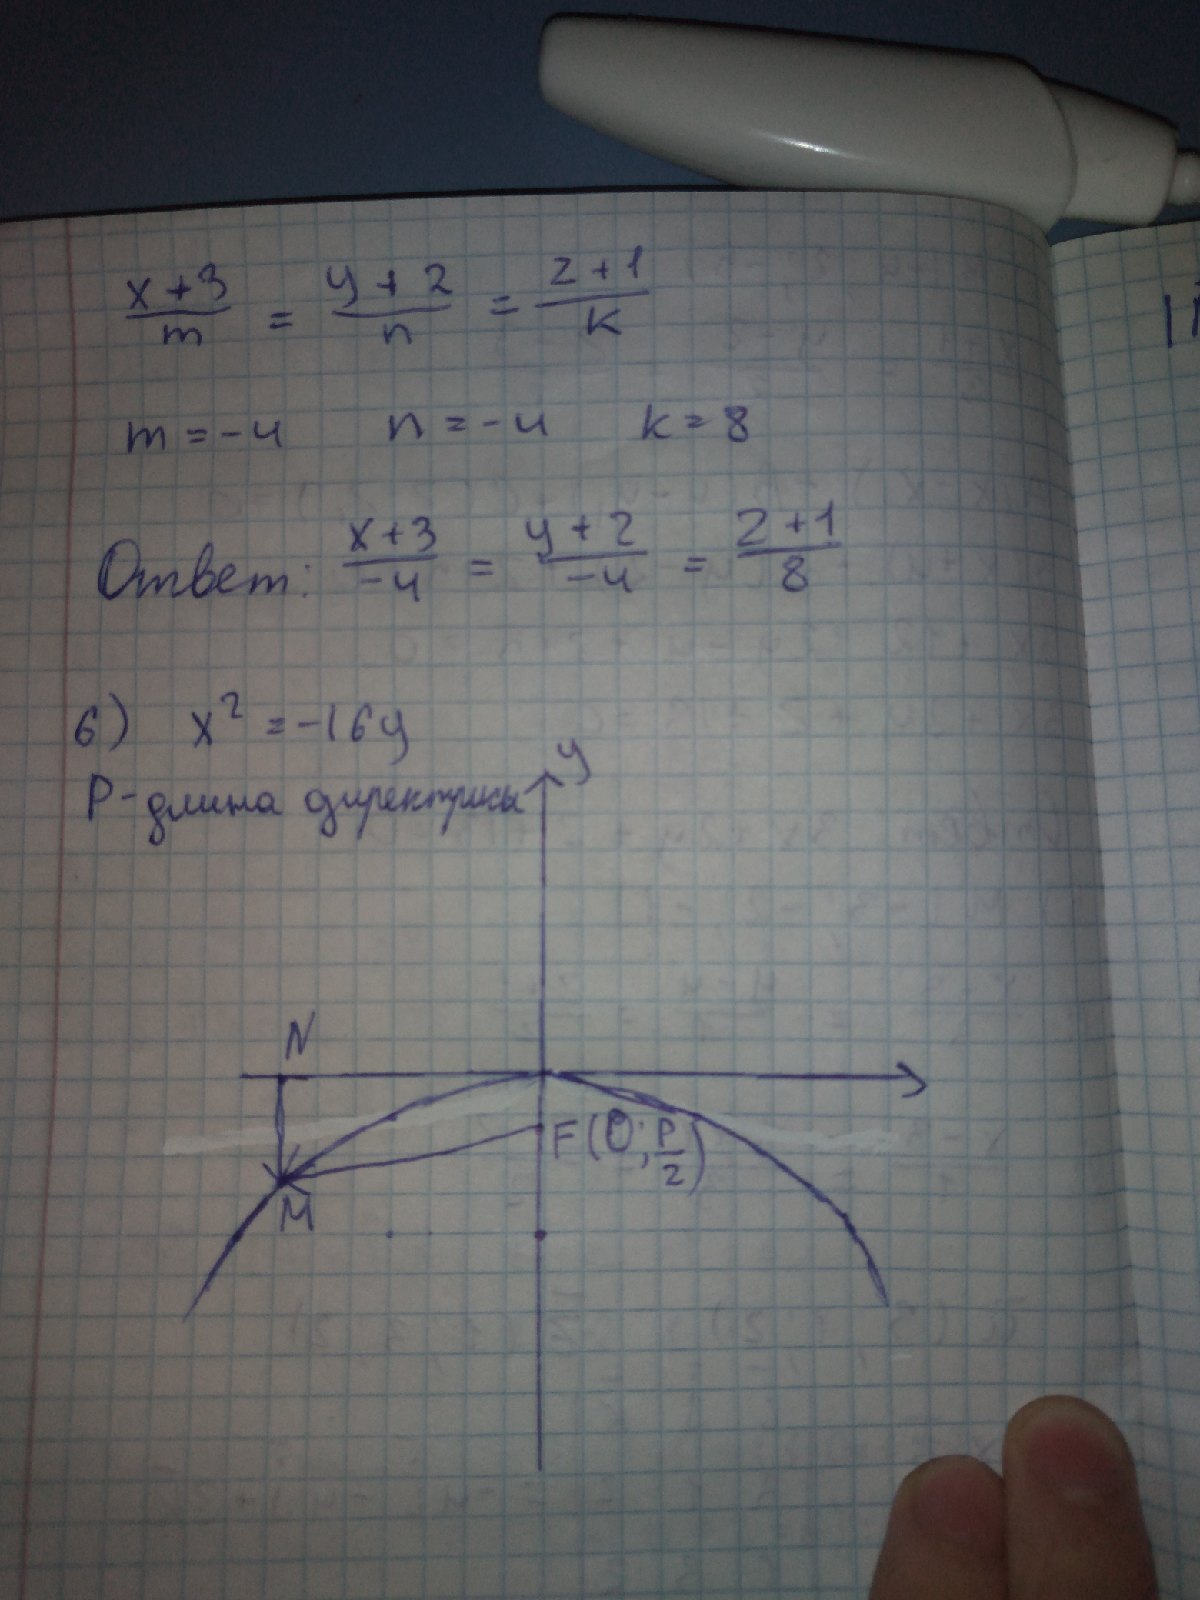 x+3/m = y+2/n = z+1/k
m=-4 n=-4 k=8
Ответ: x+3/-4 = y+2/-4 = z+1/8
6) x² = -16y
P-длина директрисы
y
N
F(0; P/2)
M